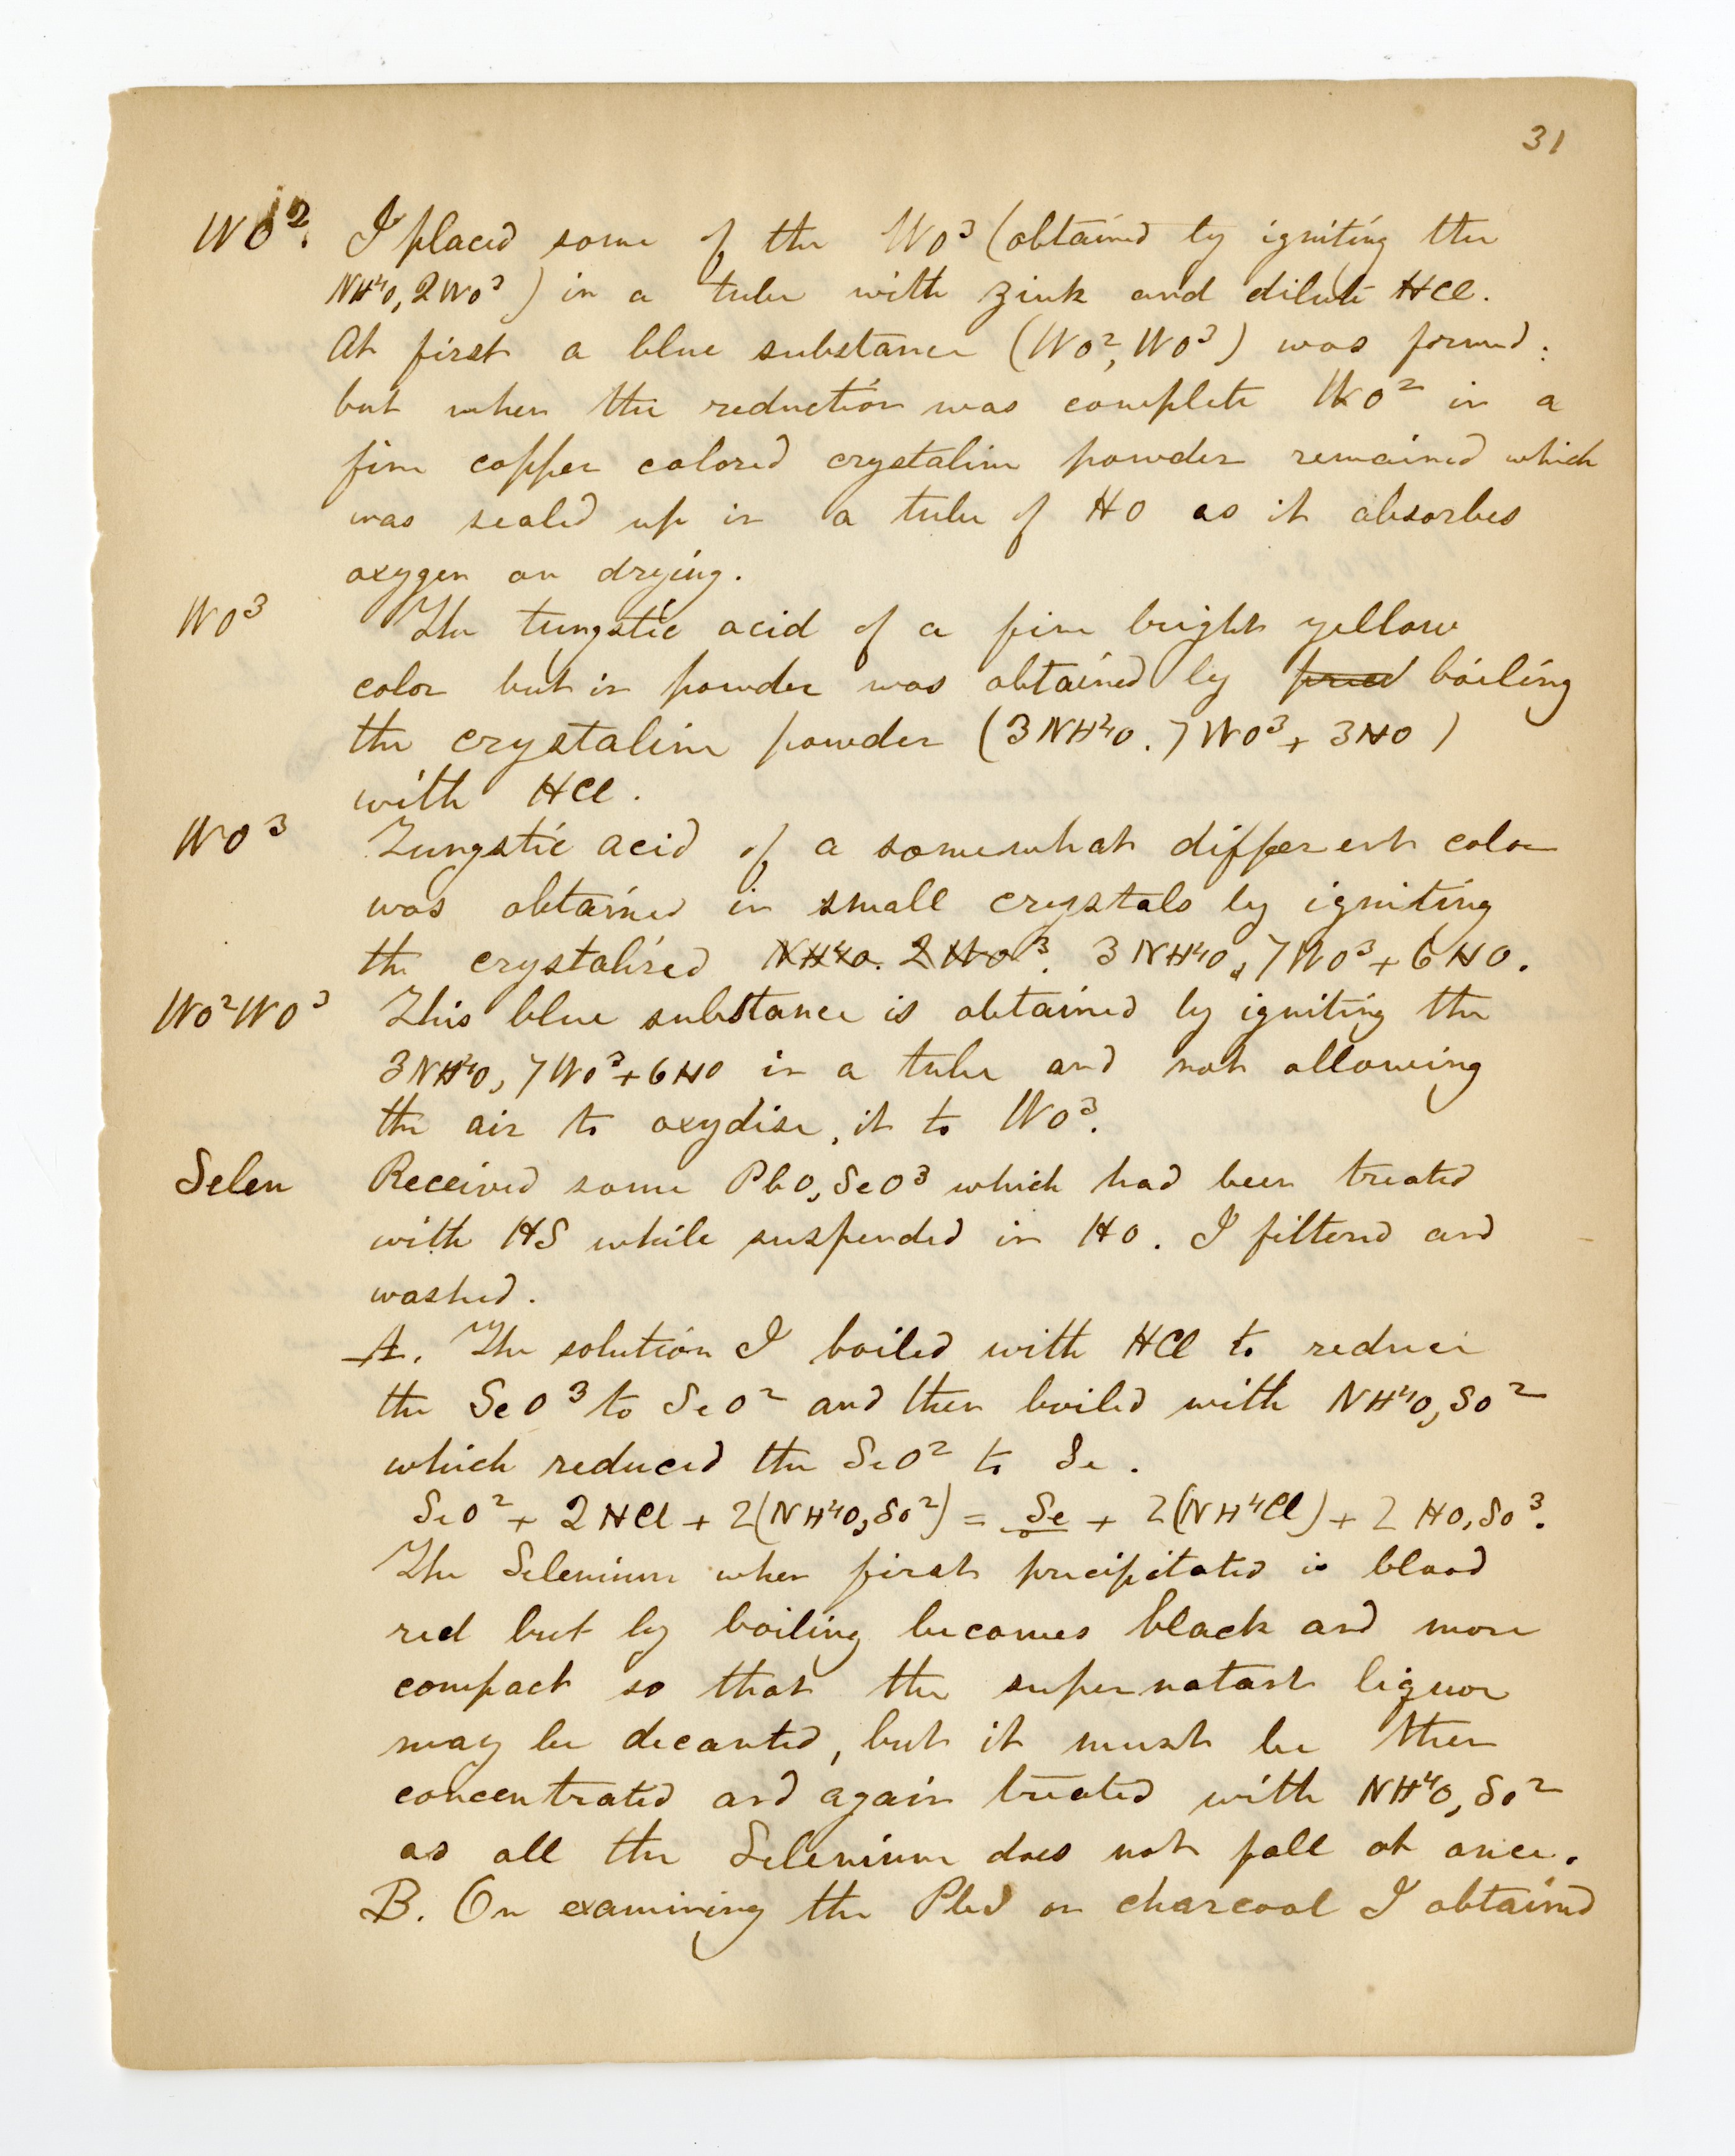 31
WO². I placed some of the WO³ (obtained by igniting the
NH⁴O, 2WO³) in a tube with zink and dilute HCl.
At first a blue substance (WO², WO³) was formed:
but when the reduction was complete WO² in a
fine copper colored crystaline powder remained which
was sealed up in a tube of HO as it absorbes
oxygen on drying.
WO³ The tungstic acid of a fine bright yellow
color but in powder was obtained by boiling
the crystaline powder (3NH⁴O. 7WO³ + 3HO)
with HCl.
WO³ Tungstic acid of a somewhat different color
was obtained in small crystals by igniting
the crystalised NH⁴O. 2WO³. 3NH⁴O, 7WO³ + 6HO.
WO²WO³ This blue substance is obtained by igniting the
3NH⁴O, 7WO³ + 6HO in a tube and not allowing
the air to oxydise, it to WO³.
Selen Received some PbO, SeO³ which had been treated
with HS while suspended in HO. I filtered and
washed.
A. The solution I boiled with HCl to reduce
the SeO³ to SeO² and then boiled with NH⁴O, SO²
which reduced the SeO² to Se.
SeO² + 2HCl + 2(NH⁴O, SO²) = Se + 2(NH⁴Cl) + 2 HO, SO³.
The Selenium when first precipitated is blood
red but by boiling becomes black and more
compact so that the supernatant liquor
may be decanted, but it must be then
concentrated and again treated with NH⁴O, SO²
as all the Selenium does not fall at once.
B. On examining the PbS on charcoal I obtained